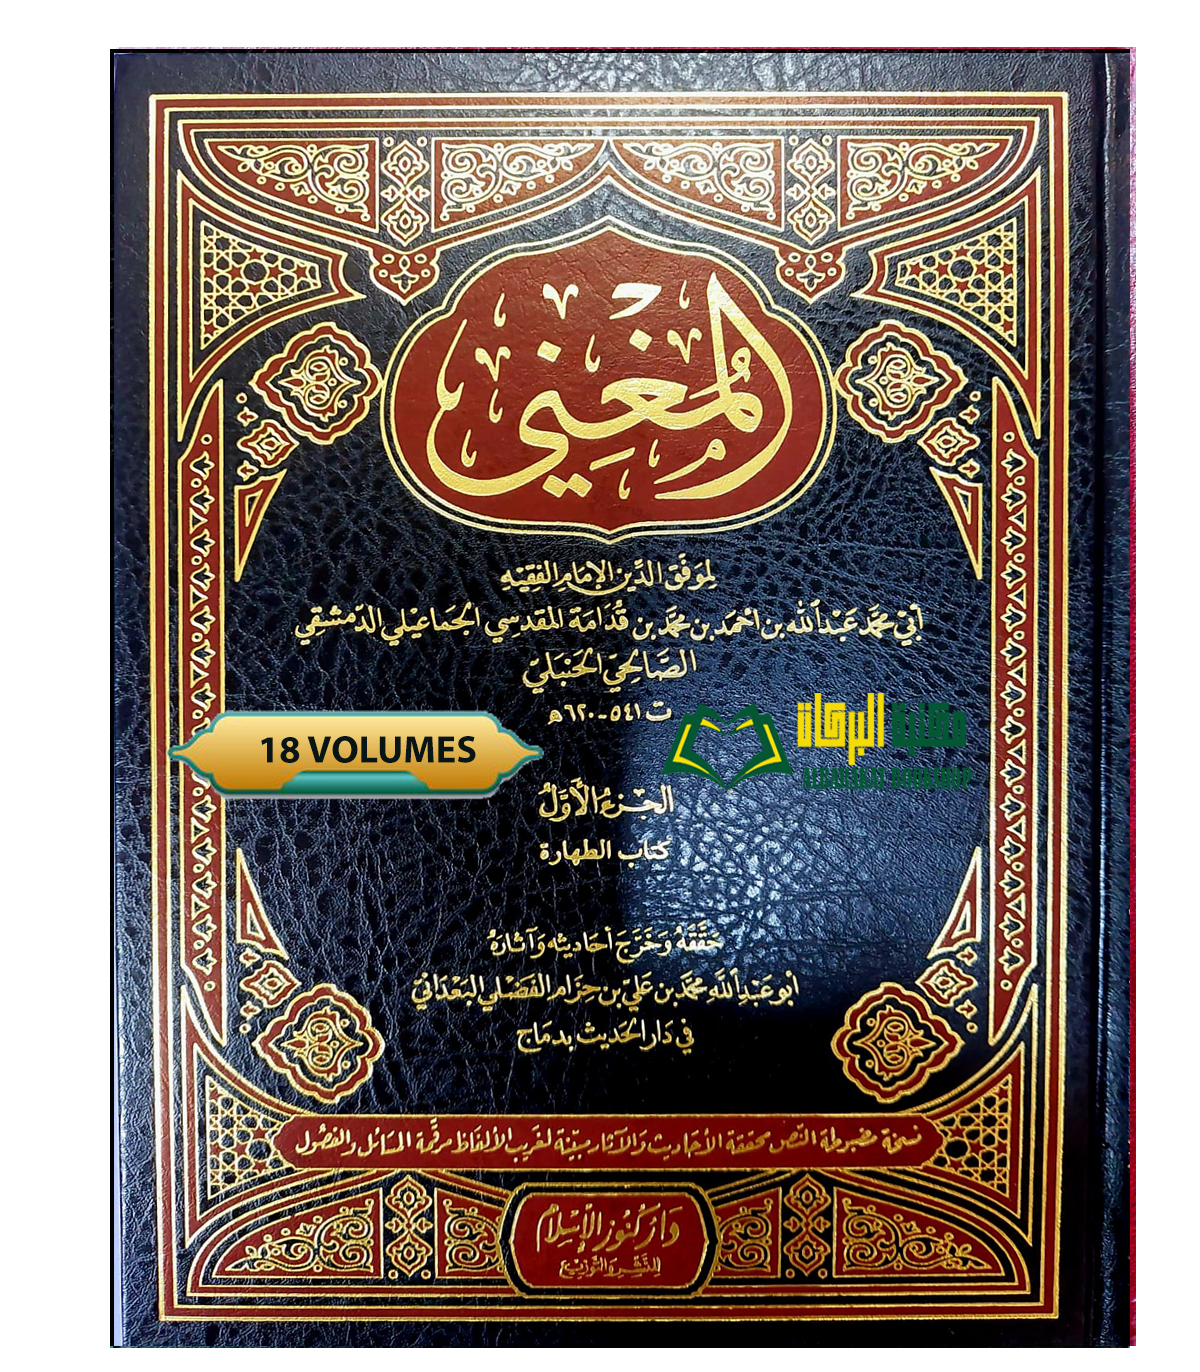 المُغْنِي
لموفق الدين الإمام الفقيه
أبي محمد عبد الله بن أحمد بن محمد بن قدامة المقدسي الجماعيلي الدمشقي
الصالحي الحنبلي
ت ٥٤١-٦٢٠هـ
18 VOLUMES
مكتبة البركات
الجزء الأول
كتاب الطهارة
حققه وخرج أحاديثه وآثاره
أبو عبد الله محمد بن علي بن حزام الفضلي البعداني
في دار الحديث بدماج
نسخة مضبوطة النص محققة الأحاديث والآثار مبينة لغريب الألفاظ مرقمة المسائل والفصول
دار كنوز الإسلام
للنشر والتوزيع